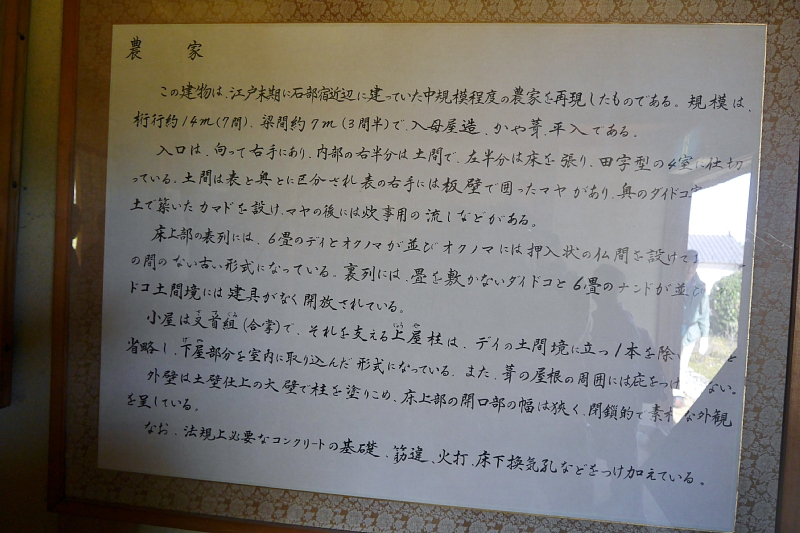 農　家
この建物は、江戸末期に石部宿近辺に建っていた中規模程度の農家を再現したものである。規模は、
桁行約14m(7間)、梁間約7m(3間半)で、入母屋造、かや葺、平入である。
入口は、向って右手にあり、内部の右半分は土間で、左半分は床を張り、田字型の4室に仕切
っている。土間は表と奥とに区分され表の右手には板壁で囲ったマヤがあり、奥のダイドコ
土で築いたカマドを設け、マヤの後には炊事用の流しなどがある。
床上部の表列には、6畳のデイとオクノマが並びオクノマには押入状の仏間を設けて
の間のない古い形式になっている。裏列には、畳を敷かないダイドコと6畳のナンドが並び
ドコ土間境には建具がなく開放されている。
小屋は叉首組(合掌)で、それを支える上屋柱は、デイの土間境に立つ1本を除い
省略し、下屋部分を室内に取り込んだ形式になっている。また、葺の屋根の周囲には庇をつけ ない。
外壁は土壁仕上の大壁で柱を塗りこめ、床上部の開口部の幅は狭く、閉鎖的で素朴な外観
を呈している。
なお、法規上必要なコンクリートの基礎、筋違、火打、床下換気孔などをつけ加えている。